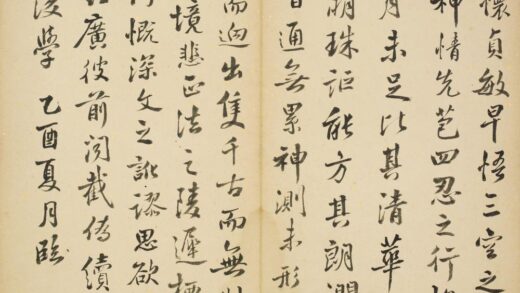 懷貞敏早悟三空之
神情先苞四忍之行
月未足比其清華
明珠詎能方其朗潤
通無累神測未形
而迥出隻千古而無
境悲正法之陵遲栖
慨深文之訛謬思欲
廣彼前聞截偽續
後學 乙酉夏月臨